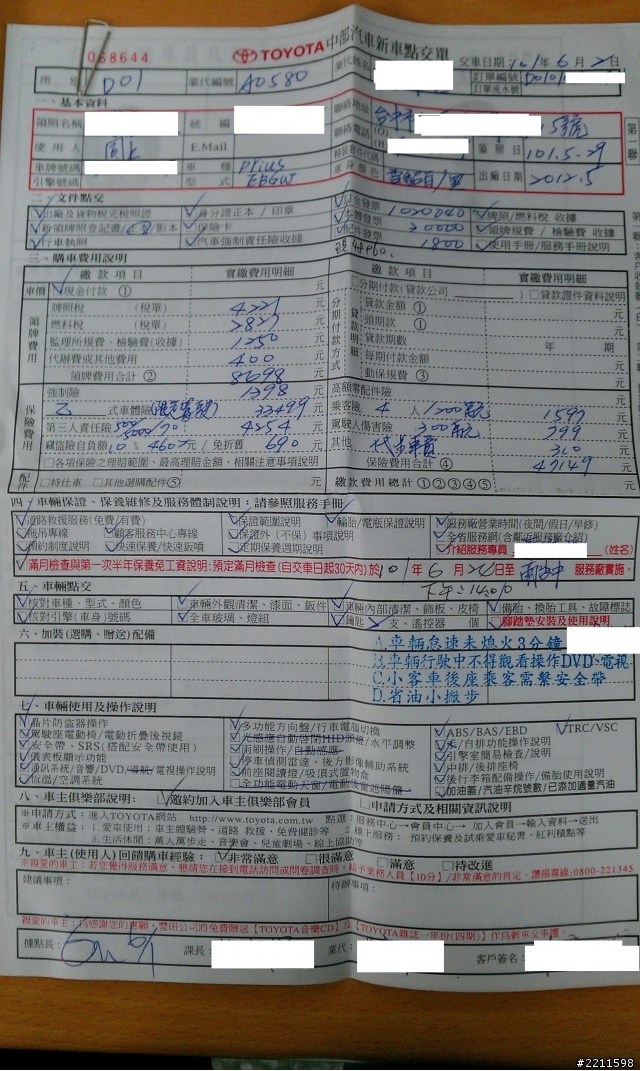 068644 TOYOTA 中部汽車新車點交單 業代姓名 交車日期 101年6月2日
所別 D01 業代編號 A0580 訂單編號
訂單流水號
一、基本資料
領照名稱 統編 聯絡地址 台中市 5號
使用人 同上 E.Mail 聯絡電話 (O) (H) 領證日 101.5.29
車牌號碼 車種 Prius
引擎號碼 型式 車身顏色 出廠日期 2012.5
二、文件點交
出廠及貨物稅完稅照證 身分證正本/印章 1020040 牌照/燃料稅 收據
新領牌照登記書 影本 保險卡 配件發票 30000 領牌規費/檢驗費 收據
行車執照 汽車強制責任險收據 1800 使用手冊/服務手冊說明
三、購車費用說明
繳款項目 實繳費用明細 繳款項目 實繳費用明細
車價 現金付款① 元 分期付款(貸款公司 ) 貸款證件資料說明
領牌費用 牌照稅 (稅單) 4221元 貸款金額① 元
燃料稅 (稅單) 2827元 頭期款① 元
監理所規費、檢驗費(收據) 1250元 貸款期數 年 期
代辦費或其他費用 400元 每期付款金額 元
領牌費用合計② 8698元 動保規費③ 元
保險費用 強制險 1398元 高額零配件險 元
乙式車體險 33499元 乘客險 4人/200萬元 1597元
第三人責任險 4254元 駕駛人傷害險 300萬元 799元
竊盜險自負額10% 4602元/免折舊 690元 其他 代步車費 310元
各項保險之理賠範圍、最高理賠金額、相關注意事項說明 保險費用合計④ 47149元
配件 特仕車 其他選購配件⑤ 元 繳款費用總計①②③④⑤ 元
四、車輛保證、保養維修及服務體制說明:請參照服務手冊
道路救援服務(免費/有費) 保證範圍說明 輪胎/電瓶保證說明 服務廠營業時間(夜間/假日/早修)
拖吊專線 顧客服務中心專線 保證外(不保)事項說明 全省服務網(含鄰近服務廠介紹)
預約制度說明 快速保養/快速鈑噴 定期保養週期說明 介紹服務專員 (姓名)
滿月檢查與第一次半年保養免工資說明:預定滿月檢查(自交車日起30天內)於101年6月24日 服務廠實施。
下午:1400
五、車輛點交
核對車種、型式、顏色 車輛外觀清潔、漆面、鈑件 車輛內部清潔、飾板、皮椅 備胎、換胎工具、故障標誌
核對引擎(車身)號碼 全車玻璃、燈組 鑰匙 支、遙控器 個 腳踏墊安裝及使用說明
六、加裝(選購、贈送)配備
A.車輛怠速未熄火3分鐘
B.車輛行駛中不得觀看操作DVD、電視
C.小客車後座乘客需繫安全帶
D.省油小撇步
七、車輛使用及操作說明
晶片防盜器操作 多功能方向盤/行車電腦切換 ABS/BAS/EBD TRC/VSC
駕駛座電動椅/電動折疊後視鏡 光感應自動啟閉HID頭燈/水平調整 手/自排功能操作說明
安全帶、SRS(搭配安全帶使用) 雨刷操作/自動感應 引擎室簡易檢查/說明
儀表板顯示功能 停車偵測雷達、後方影像輔助系統 中排/後排座椅
通訊系統/音響/DVD/導航/電視操作說明 前座閱讀燈/吸頂式置物盒 後行李箱配備操作/備胎使用說明
恆溫/空調系統 全功能電動天窗/電動後窗遮陽簾 加油蓋/汽油辛烷號數/已添加適量汽油
八、車主俱樂部說明: 邀約加入車主俱樂部會員 申請方式及相關資訊說明
※申請方式:進入TOYOTA網站 http://www.toyota.com.tw 點選:服務中心→會員中心→加入會員→輸入資料→送出
※車主權益:1.愛車使用:車主體驗營、道路救援、免費健診等 2.線上服務:預約保養及試乘愛車秘書、紅利積點等
3.生活休閒:萬人萬步走、音樂會、兒童劇場、線上協助等
九、車主(使用人)回饋購車經驗: 非常滿意 很滿意 滿意 待改進
※親愛的車主:若您覺得服務滿意,懇請您在接到電話訪問或問卷調查時,給予業務人員【10分】/非常滿意的肯定。讚揚專線:0800-221345
建議事項: 待辦事項:
親愛的車主:為感謝您的惠顧,豐田公司將免費贈送【TOYOTA音樂CD】及【TOYOTA雜誌一年份(四期)】作為新車交車禮。
據點長: 課長: 業代: 客戶簽名:
第一聯
#2211598